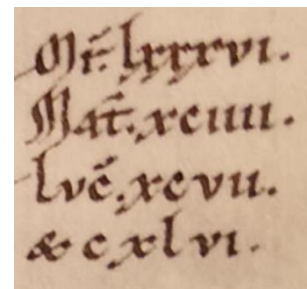 Mr̄. lxxxvi.
Mat̄. xciiii.
lvc̄. xcvii.
& cxlvi.